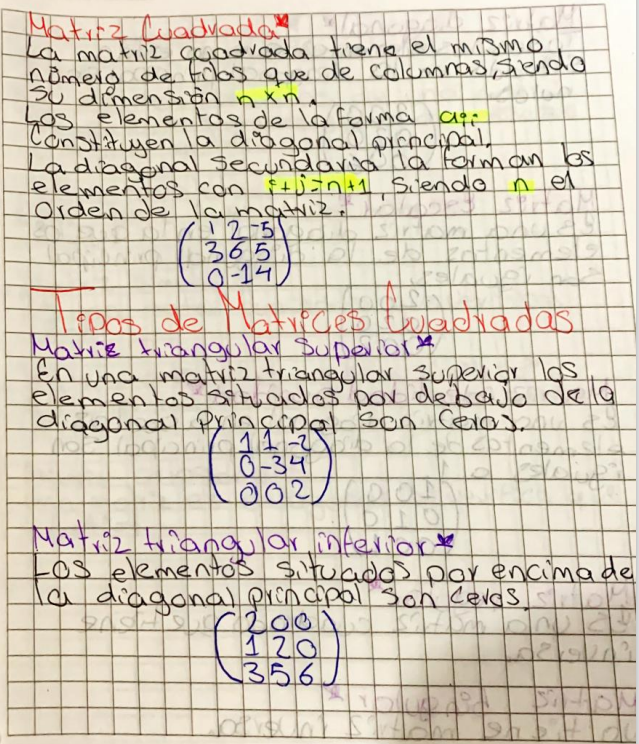 Matriz Cuadrada*
La matriz cuadrada tiene el mismo
número de filas que de columnas, siendo
su dimensión n×n.
Los elementos de la forma aii
Constituyen la diagonal principal.
La diagonal secundaria la forman los
elementos con i+j=n+1, siendo n el
Orden de la matriz.
1 2 -5
3 6 5
0 -1 4
Tipos de Matrices Cuadradas
Matriz triangular Superior*
En una matriz triangular superior los
elementos situados por debajo de la
diagonal principal son ceros.
1 1 -2
0 -3 4
0 0 2
Matriz triangular inferior*
Los elementos situados por encima de
la diagonal principal son ceros.
2 0 0
1 2 0
3 5 6